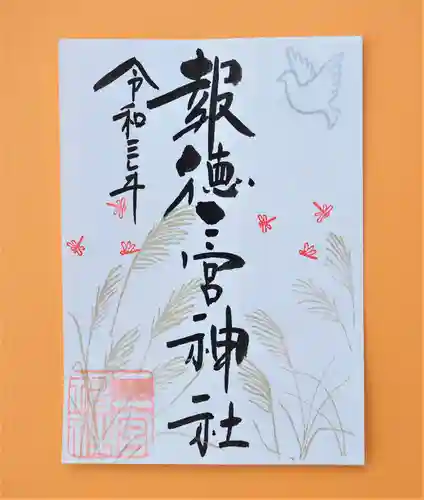 報徳二宮神社
令和三年